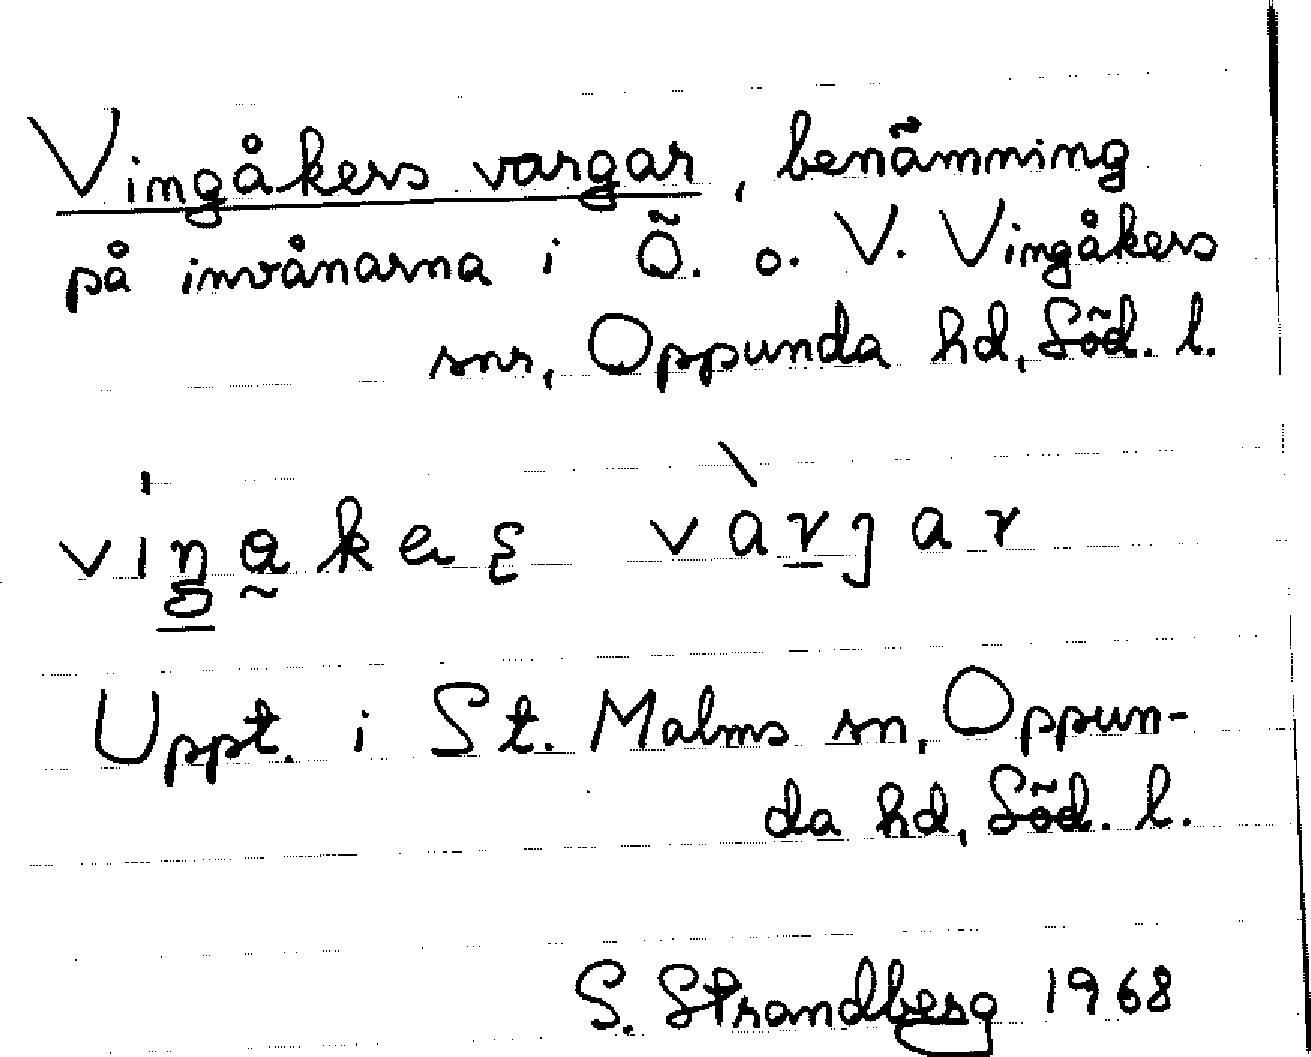 Vingåkers vargar, benämning
på invånarna i Ö. o. V. Vingåkers
snr, Oppunda hd, Söd. l.
Uppt. i St. Malms sn, Oppun-
da hd, Söd. l.
S. Strandberg 1968